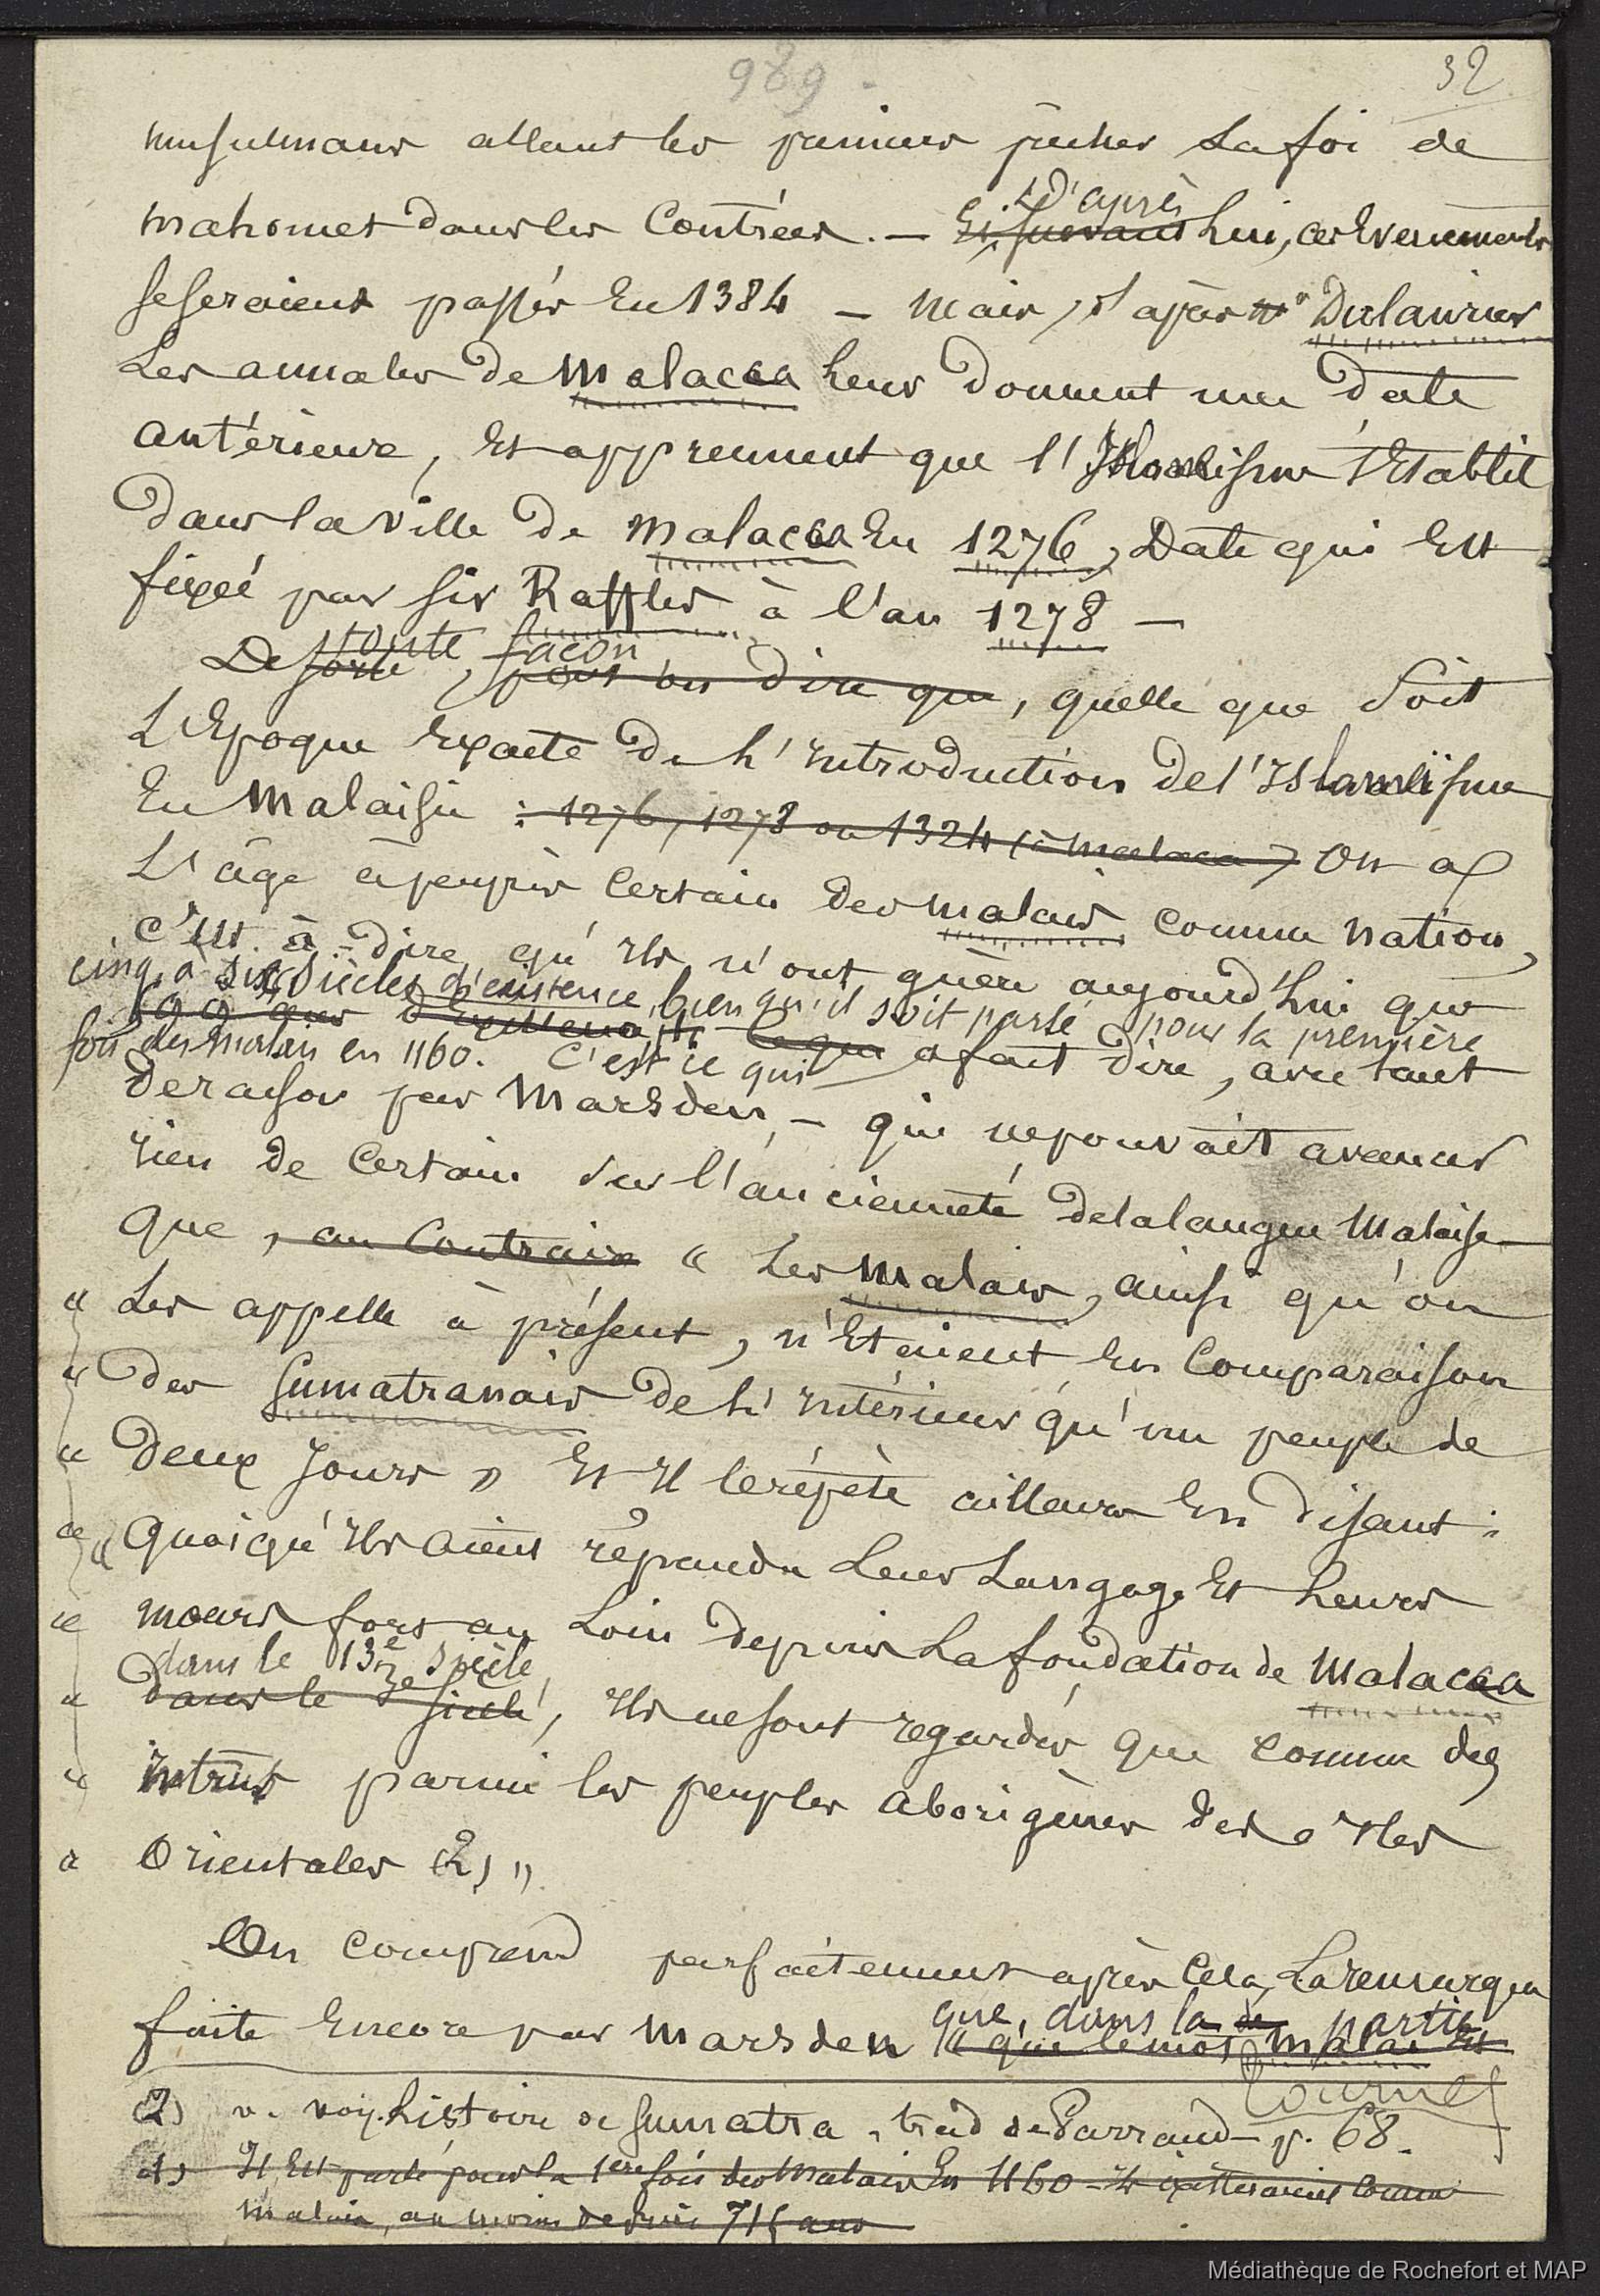 989 -
32
musulmans allant les premiers prêcher la foi de
Mahomet dans les Contrées. — Et, suivant D'après lui, ces Evenements
se seraient passés En 1384 — mais, d'après Mr Dulaurier
Les annales de Malacca leur donnent une date
antérieure, Et apprennent que l'Islamisme s'Etablit
Dans la ville de Malacca En 1276, Date qui Est
fixée par Sir Raffles à l'an 1278 —
toute façon
De sorte, pour bien dire que, quelle que soit
L'Epoque Exacte De L'Introduction de l'Islamisme
En Malaisie : 1276, 1278 ou 1324 (à Malacca) On a
L'âge àpeuprès Certain des Malais comme nation,
c'Est-à-dire qu'Ils n'ont guère aujourd'hui que
cinq à six siècles d'existence, bien qu'il soit parlé pour la première
ans d'Existence, Ce qui a fait Dire, avec tant
fois des Malais en 1160. C'est ce qui
De raison par Marsden, — qui ne pouvait avancer
rien de Certain sur l'ancienneté de la langue Malaise
que, au Contraire « Les Malais, ainsi qu'on
« Les appelle à présent, n'Etaient En Comparaison
« Des Sumatranais De L'Intérieur qu'un peuple de
« Deux Jours » Et Il le répète ailleurs En Disant :
« « Quoiqu'Ils aient répandu Leur Langage Et Leurs
« mœurs fort au Loin depuis La fondation de Malacca
dans le 13e siècle,
« Dans le 13e siècle, Ils ne sont regardés que comme des
« intrus parmi les peuples aborigènes des Iles
« Orientales (2) »
On comprend parfaitement après Cela, La remarque
que, dans la de partie
faite Encore par Marsden « que le mot Malai Est
tournez
(2) v. voy. histoire de Sumatra, trad de Parraud p. 68.
(1) Il Est parlé pour la 1ere fois des Malais En 1160 - Ils existeraient comme
Malais, au moins depuis 715 ans
Médiathèque de Rochefort et MAP